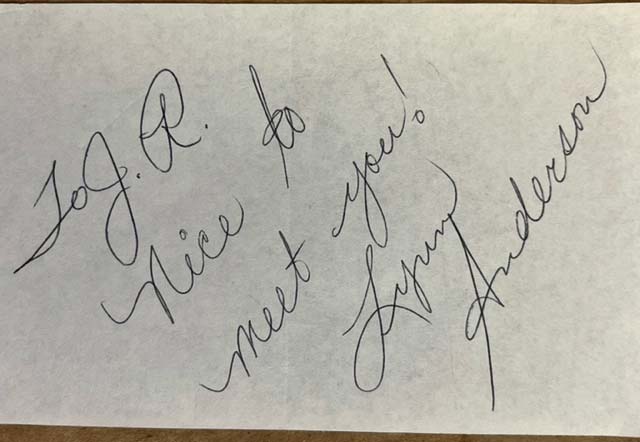 To J. R.
Nice to
meet you!
Lynn
Anderson